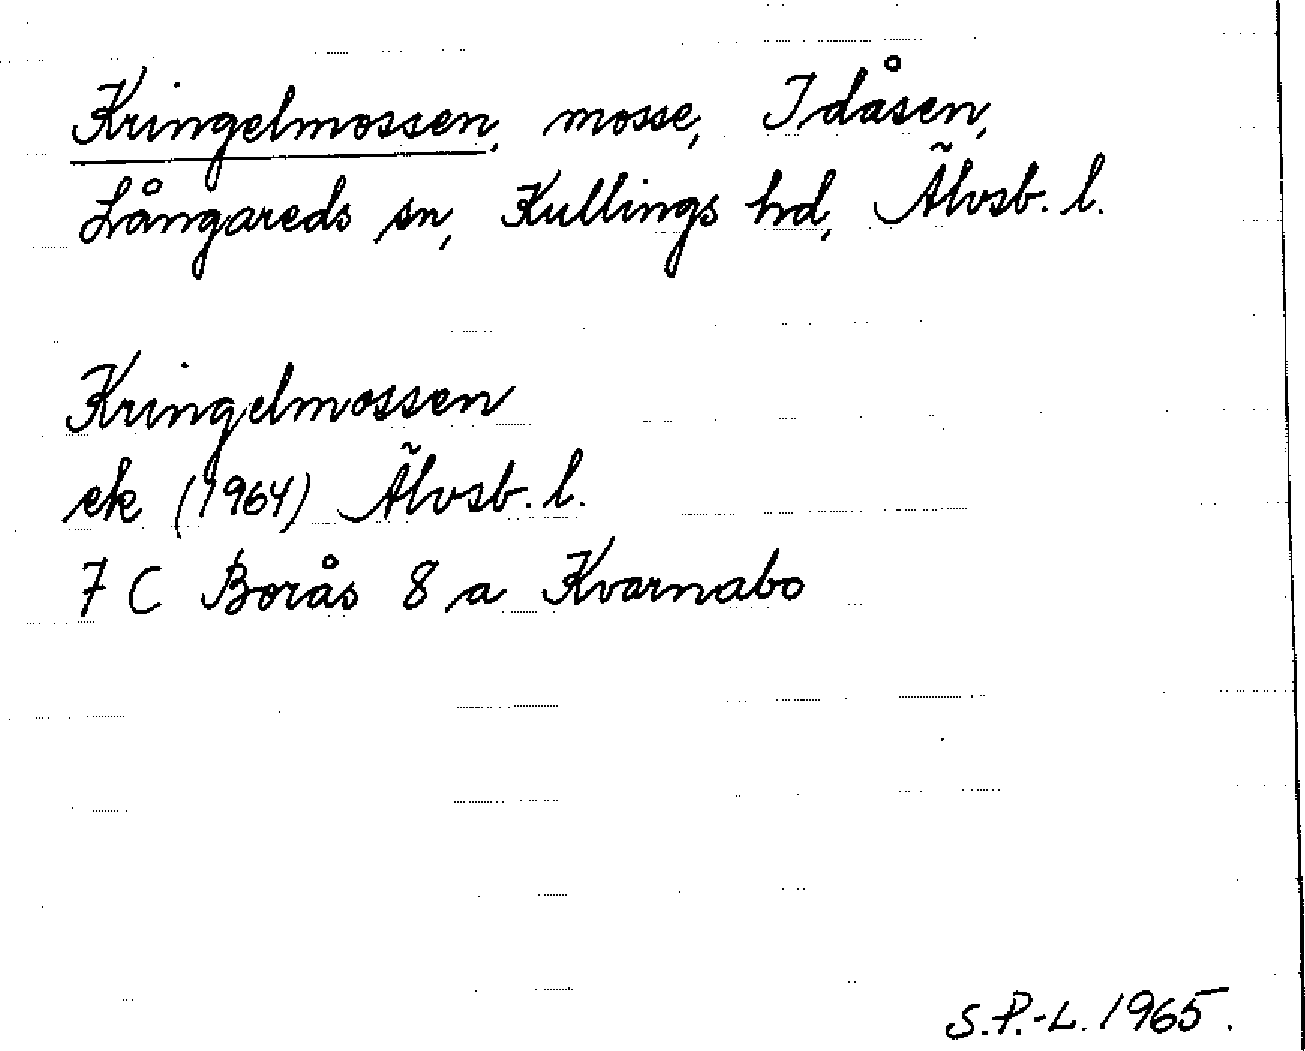 Kringelmossen, mosse, Idåsen,
Långareds sn, Kullings hd, Älvsb. l.
Kringelmossen
ek (1964) Älvsb. l.
7 C Borås 8 a Kvarnabo
S.P.-L. 1965.